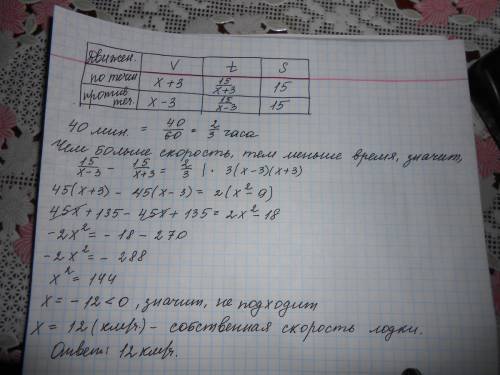 Движен. V t S
по течн x+3 15/x+3 15
против теч. x-3 15/x-3 15
40 мин. = 40/60 = 2/3 часа
Чем больше скорость, тем меньше время, значит,
15/x-3 - 15/x+3 = 2/3 | · 3(x-3)(x+3)
45(x+3) - 45(x-3) = 2(x²-9)
45x + 135 - 45x + 135 = 2x² - 18
-2x² = -18 - 270
-2x² = - 288
x² = 144
x = -12 < 0, значит, не подходит
x = 12 (км/ч) - собственная скорость лодки.
Ответ: 12 км/ч.